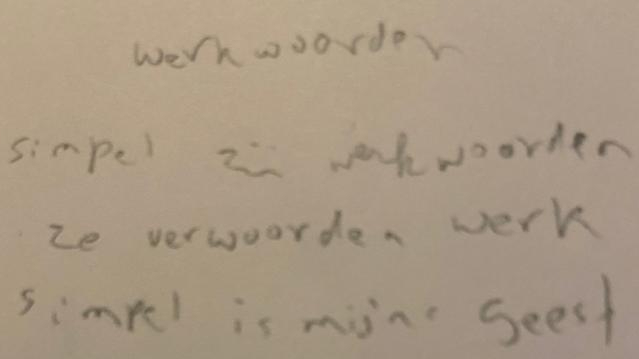 werkwoorden
simpel zijn werkwoorden
ze verwoorden werk
simpel is mijne geest